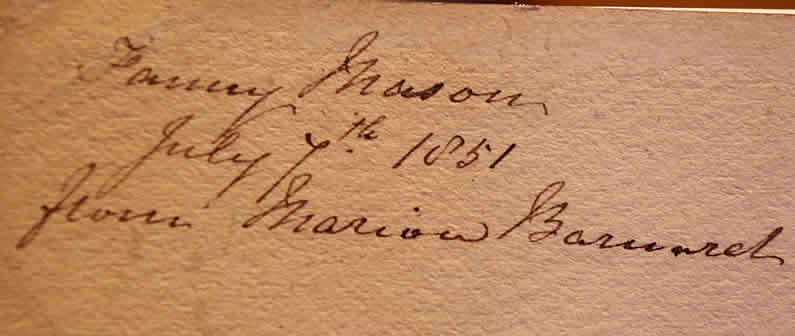 Fanny Mason
July 7th 1851
from Marion Barnard